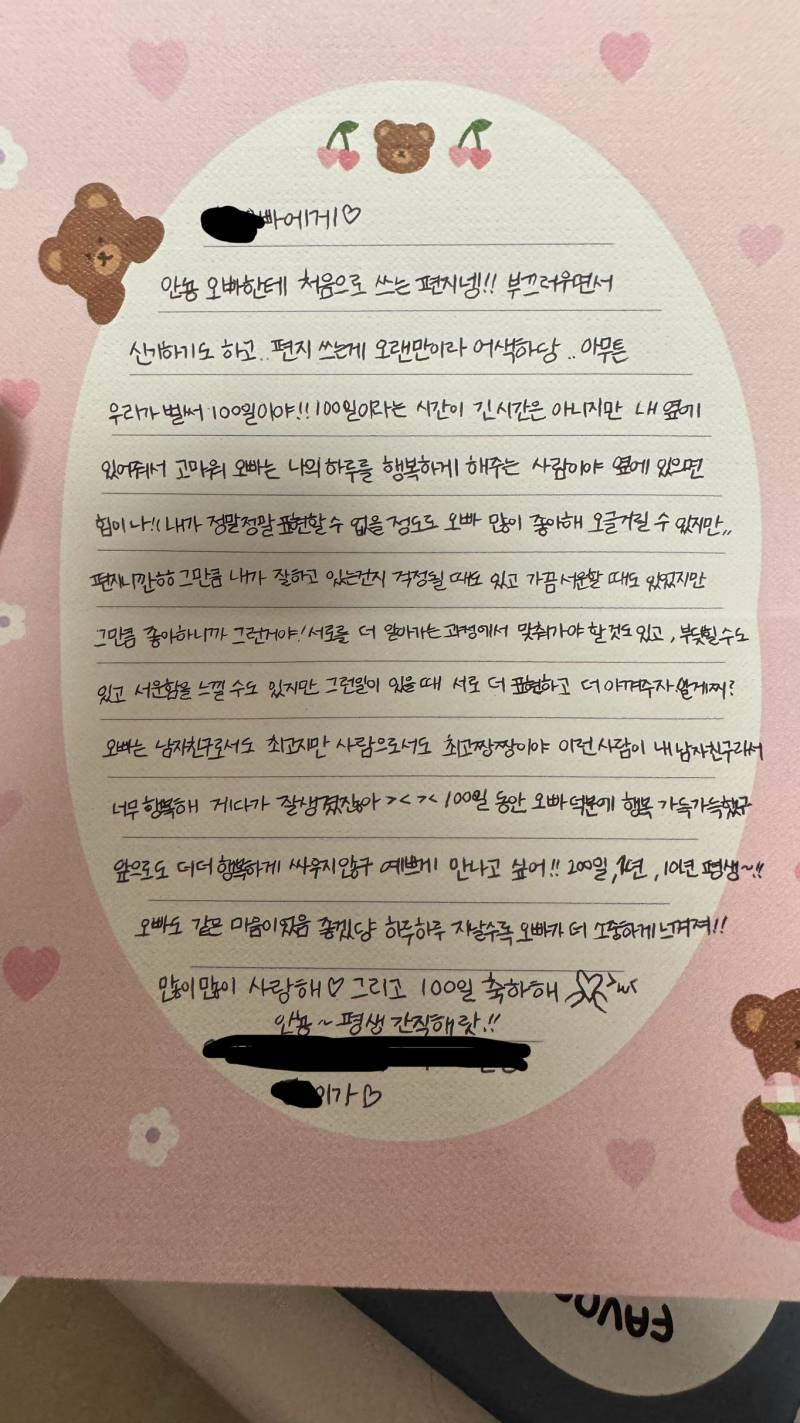 빠에게♡
안뇽 오빠한테 처음으로 쓰는 편지넹!! 부끄러우면서
신기하기도 하고.. 편지 쓰는게 오랜만이라 어색하당.. 아무튼
우리가 벌써 100일이야!! 100일이라는 시간이 긴 시간은 아니지만 내 옆에
있어줘서 고마워 오빠는 나의 하루를 행복하게 해주는 사람이야 옆에 있으면
힘이 나!! 내가 정말정말 표현할 수 없을 정도로 오빠 많이 좋아해 오글거릴 수 있지만,,
편지니깐ㅎㅎ 그만큼 내가 잘하고 있는건지 걱정될 때도 있고 가끔 서운할 때도 있었지만
그만큼 좋아하니까 그런거야! 서로를 더 알아가는 과정에서 맞춰가야 할 것도 있고, 부딪힐 수도
있고 서운함을 느낄 수도 있지만 그런일이 있을 때 서로 더 표현하고 더 아껴주자 알게찌?
오빠는 남자친구로서도 최고지만 사람으로서도 최고짱짱이야 이런 사람이 내 남자친구라서
너무 행복해 게다가 잘생겼잖아 >< >< 100일 동안 오빠 덕분에 행복 가득가득했구
앞으로도 더더 행복하게 싸우지않구 예쁘게 만나고 싶어!! 200일, 1년, 10년 평생~!!
오빠도 같은 마음이었음 좋겠당 하루하루 지날수록 오빠가 더 소중하게 느껴져!!
많이많이 사랑해♡ 그리고 100일 축하해
안뇽~ 평생 간직해랏!!
이가♡
FAVO